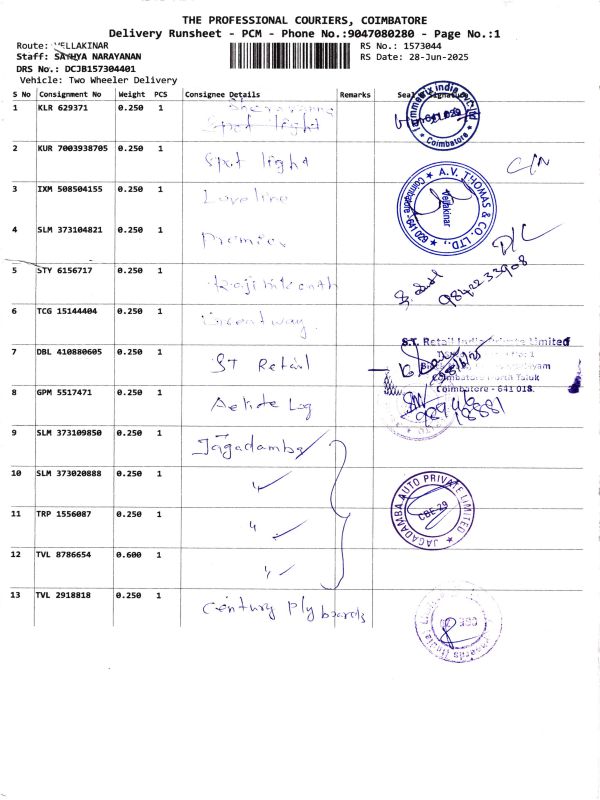 THE PROFESSIONAL COURIERS, COIMBATORE
Delivery Runsheet - PCM - Phone No.:9047080280 - Page No.:1
Route: VELLAKINAR
RS No.: 1573044
Staff: SATHYA NARAYANAN
RS Date: 28-Jun-2025
DRS No.: DCJB157304401
Vehicle: Two Wheeler Delivery
S No Consignment No Weight PCS Consignee Details Remarks Seal
1 KLR 629371 0.250 1 Spot light
Coimbatore
2 KUR 7003938705 0.250 1 Spot light
3 IXM 508504155 0.250 1
A.V. THOMAS & CO. LTD.,
Vellakinar
Coimbatore-641 029
4 SLM 373104821 0.250 1 Premier
5 STY 6156717 0.250 1 Rajinikanth
9842233908
6 TCG 15144404 0.250 1
S.T. Retail India Private Limited
7 DBL 410880605 0.250 1 ST Retail
Coimbatore North Taluk
Coimbatore - 641 018.
8 GPM 5517471 0.250 1
9 SLM 373109850 0.250 1 Jagadamba
10 SLM 373020888 0.250 1 "
11 TRP 1556087 0.250 1 "
JAGADAMBA AUTO PRIVATE LIMITED
CBE-29
12 TVL 8786654 0.600 1 "
13 TVL 2918818 0.250 1 Century Ply boards